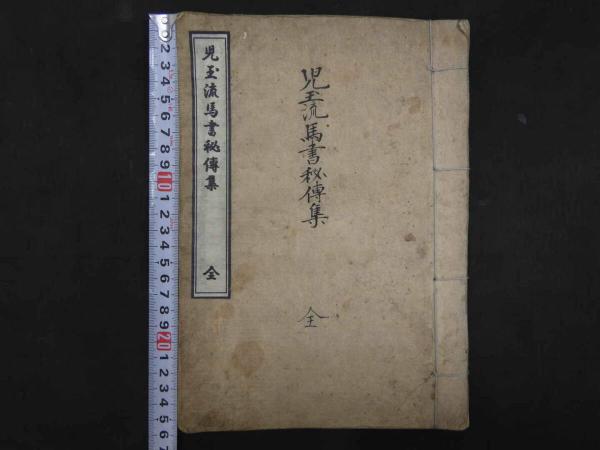 児玉流馬書秘傳集
全
児玉流馬書秘傳集
全
2 3 4 5 6 7 8 9 10 1 2 3 4 5 6 7 8 9 20 1 2 3 4 5 6 7